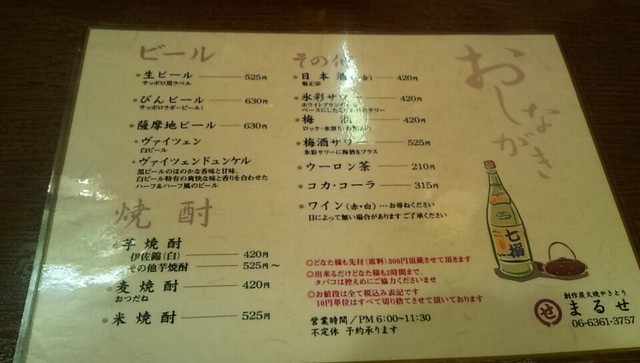 おしながき
ビール
生ビール 525円
サッポロ黒ラベル
びんビール 630円
サッポロラガービール
薩摩地ビール 630円
ヴァイツェン
白ビール
ヴァイツェンドュンケル
黒ビールのほのかな香味と甘味、
白ビール特有の爽快な味と香りを合わせた
ハーフ&ハーフ風のビール
焼酎
芋焼酎
伊佐錦(白) 420円
その他芋焼酎 525円～
麦焼酎 420円
おつだね
米焼酎 525円
その他
日本酒 420円
菊正宗
氷彩サワー 420円
ホワイトブランデー
ベースにしたこだわりのサワー
梅酒 420円
ロック・水割り・お湯割り
梅酒サワー 525円
氷彩サワーに梅酒をプラス
ウーロン茶 210円
コカ・コーラ 315円
ワイン(赤・白)…お尋ねください
日によって無い場合があります ご了承ください
◎どなた様も先付(席料)300円頂戴させて頂きます
◎出来るだけどなた様も2時間まで、
タバコは控えめにご協力くださいませ
◎お値段は全て税込み表記です
10円単位はすべて切り捨てさせて頂いております
営業時間/PM 6:00～11:30
不定休 予約承ります
七撰
創作炭火焼やきとり
せ まるせ
06-6361-3757